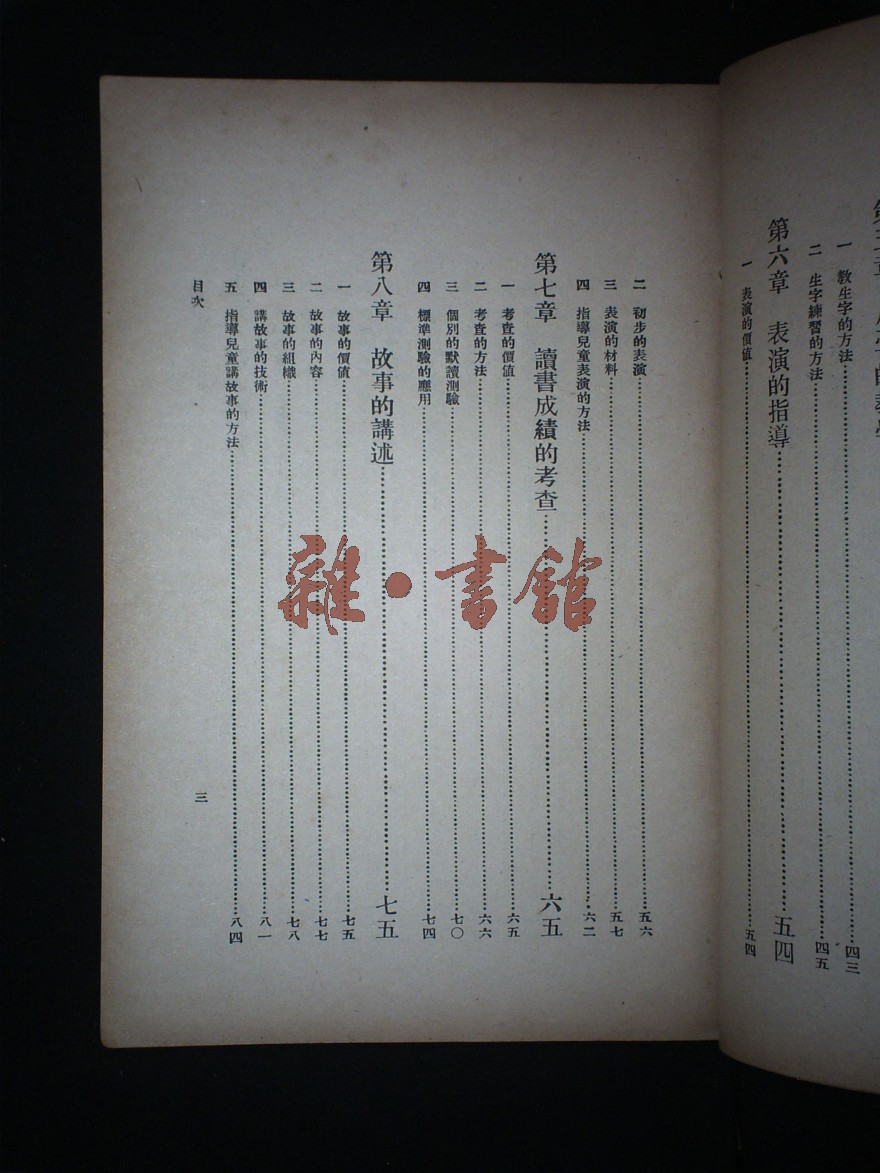 一　教生字的方法……四三
二　生字練習的方法……四五
第六章　表演的指導……五四
一　表演的價值……五四
二　初步的表演……五六
三　表演的材料……五七
四　指導兒童表演的方法……六二
第七章　讀書成績的考查……六五
一　考查的價值……六五
二　考查的方法……六六
三　個別的默讀測驗……七〇
四　標準測驗的應用……七四
第八章　故事的講述……七五
一　故事的價值……七五
二　故事的內容……七七
三　故事的組織……七八
四　講故事的技術……八一
五　指導兒童講故事的方法……八四
目次
三
雜·書館